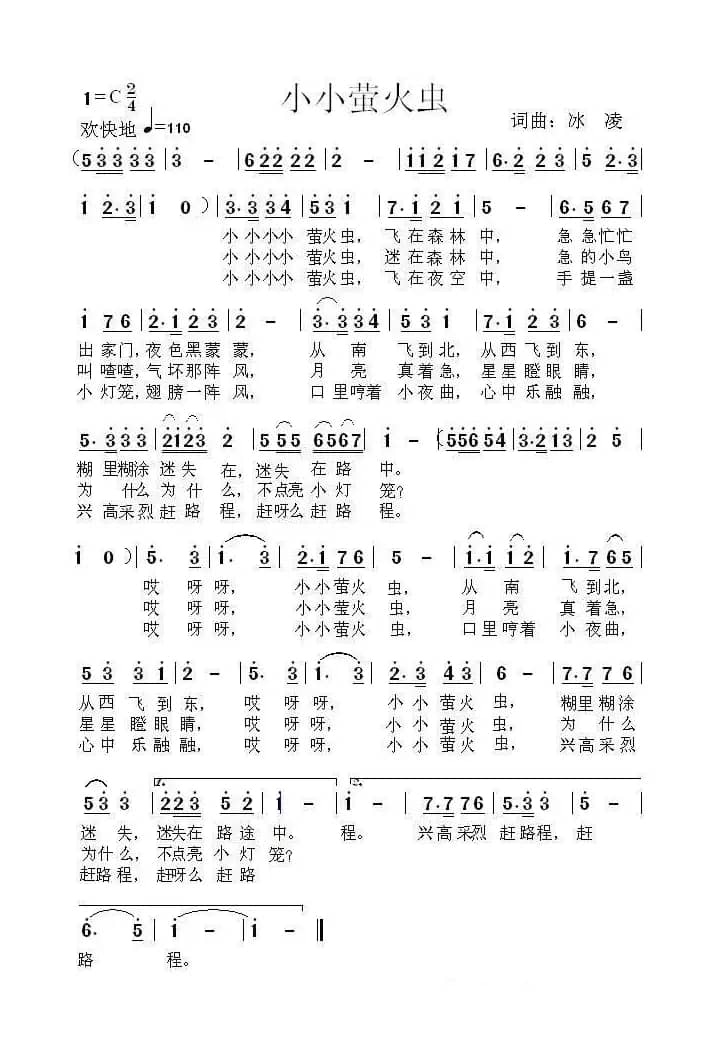 小小萤火虫
1=C 2/4
欢快地 ♩=110
词曲：冰 凌
(5 3 3 3 3 3 | 3 – | 6 2 2 2 2 2 | 2 – | 1 1 2 1 7 | 6· 2 2 3 | 5 2·3 |
1 2·3 | 1 0 ) | 3·3 3 4 | 5 3 1 | 7·1 2 1 | 5 – | 6·5 6 7 |
小 小小小 萤火虫， 飞在森林 中， 急 急忙忙
小 小小小 萤火虫， 迷在森林 中， 急 的小鸟
小 小小小 萤火虫， 飞在夜空 中， 手 提一盏
1 7 6 | 2·1 2 3 | 2 – | 3·3 3 4 | 5 3 1 | 7·1 2 3 | 6 – |
出 家门，夜色黑蒙 蒙， 从 南 飞到北，从西飞到 东，
叫 喳喳，气坏那阵 风， 月 亮 真着急，星星瞪眼 睛，
小 灯笼，翅膀一阵 风， 口里哼着 小夜曲，心中乐融 融，
5· 3 3 3 | 2 1 2 3 2 | 5 5 5 6 5 6 7 | 1 – | (5 5 6 5 5 4 | 3·2 1 3 | 2 5 |
糊 里糊涂 迷 失 在，迷失 在 路 中。
为 什么 为 什 么，不点亮 小 灯 笼？
兴 高采烈 赶 路 程，赶呀么 赶 路 程。
1 0 ) | 5· 3 | 1· 3 | 2·1 7 6 | 5 – | 1·1 1 2 | 1·7 6 5 |
哎 呀 呀， 小小萤火 虫， 从 南 飞到北，
哎 呀 呀， 小小莹火 虫， 月 亮 真着急，
哎 呀 呀， 小小萤火 虫， 口里哼着 小夜曲，
5 3 3 1 | 2 – | 5· 3 | 1· 3 | 2·3 4 3 | 6 – | 7·7 7 6 |
从西 飞 到 东， 哎 呀 呀， 小 小 萤火 虫， 糊里糊涂
星星 瞪 眼 睛， 哎 呀 呀， 小 小 萤火 虫， 为 什 么
心中 乐 融 融， 哎 呀 呀， 小 小 萤火 虫， 兴高采烈
1. 2.
5 3 3 | 2 2 3 5 2 | 1 – | 1 – | 7·7 7 6 | 5·3 3 | 5 – |
迷 失， 迷失在 路 途 中。 程。 兴高采烈 赶路程， 赶
为什么， 不点亮 小 灯 笼？
赶路程， 赶呀么 赶 路
6· 5 | 1 – | 1 – ‖
路 程。